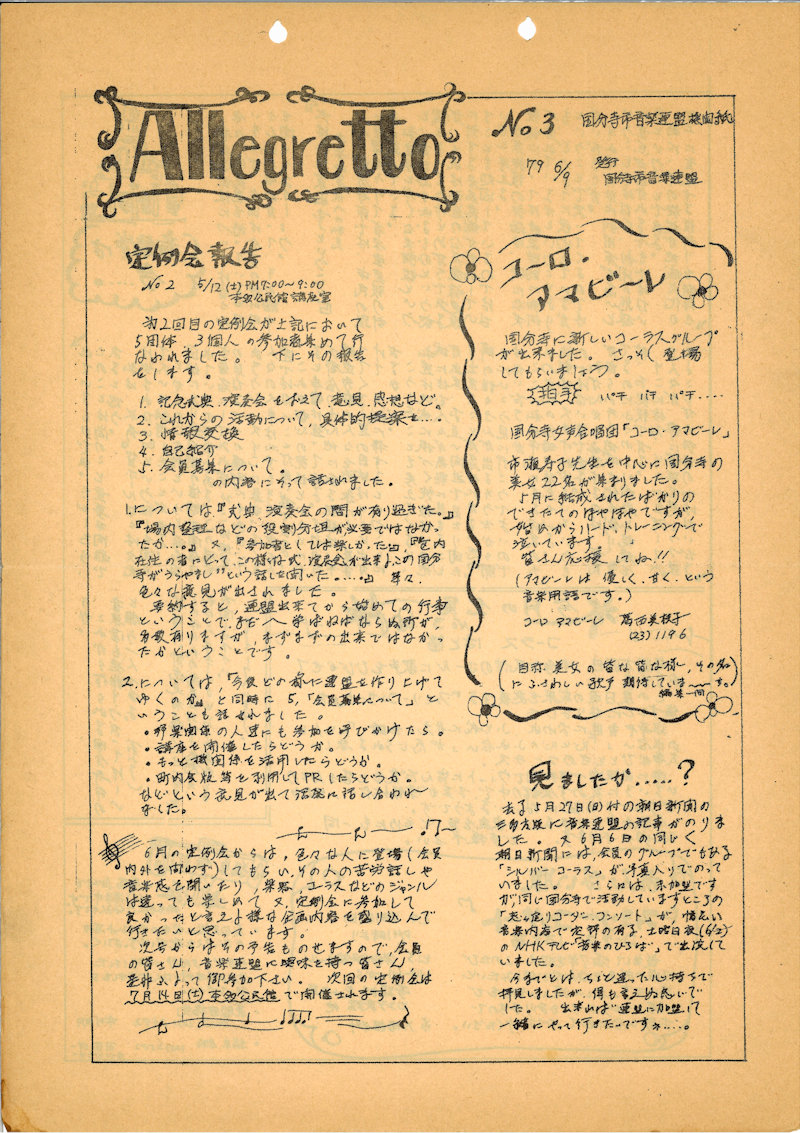 Allegretto
No 3
国分寺市音楽連盟機関紙
79 6/9
発行
国分寺市音楽連盟
定例会報告
No 2 5/12(土)PM7:00~9:00
本多公民館 講座室
第2回目の定例会が上記において
5団体、3個人の参加者を集めて行
なわれました。 下にその報告
をします。
1. 記念式典、演奏会を終えて、意見、感想など。
2. これからの活動について、具体的提案を….
3. 情報交換
4. 自己紹介
5. 会員募集について。
の内容にそって話されました。
1.については『式典、演奏会の間が有り過ぎた。』
『場内整理などの役割分担が必要ではなかっ
たか…。』又、『参加者としては楽しかった』、『市内
在住の者にとって、この様な式、演奏会が出来る、この国分
寺がうらやましい"という話しを聞いた。….』 等々、
色々な意見が出されました。
要約すると、連盟出来てから始めての行事
ということで、まだへ学ばねばならぬ所が、
多数有りますが、まずまずの出来ではなかっ
たかということです。
2.については、「今後どの様に連盟を作り上げて
ゆくのか」、と同時に 5,「会員募集について」と
いうことも話されました。
・邦楽関係の人達にも参加を呼びかけたら。
・講座を開催したらどうか。
・もっと機関紙を活用したらどうか。
・町内会版等を利用してPRしたらどうか。
などという意見が出て活発に話し合われ
ました。
6月の定例会からは、色々な人に登場(会員
内外を問わず)してもらい、その人の苦労話しや
音楽感を聞いたり、楽器、コーラスなどのジャンル
は違っても楽しめて、又、定例会に参加して
良かったと言える様な企画内容を盛り込んで
行きたいと思っています。
次号からはその予告ものせますので、会員
の皆さん、音楽連盟に興味を持つ皆さん
是非ふるって御参加下さい。 次回の定例会は
7月14日(土)本多公民館で開催されます。
コーロ・
アマビーレ
国分寺に新しいコーラスグループ
が出来ました。 さっそく登場
してもらいましょう。
拍手 パチ パチ パチ….
国分寺女声合唱団「コーロ・アマビーレ」
市瀬寿子先生を中心に国分寺の
美女22名が集まりました。
5月に結成されたばかりの
できたてのほやほやですが、
始めからハード、トレーニングで
泣いています。
皆さん応援してね!!
(アマビーレは 優しく、甘く、という
音楽用語です。)
コーロ アマビーレ 葛西美枝子
(23)1196
(自称 美女の皆な皆な様し、その名
にふさわしい歌声期待していま〜〜す。)
編集一同
見ましたか…..?
去る5月27日(日)付の朝日新聞の
三多摩版に音楽連盟の記事がのりま
した。 又6月6日の同じく
朝日新聞には、会員のグループでもある
「シルバーコーラス」が写真入りでのって
いました。 さらには、未加盟です
が同じ国分寺で活動していますところの
「志ん定リコーダー、コンソート」が、幅広い
音楽内容で定評の有る、土曜日夜(6/2)
のNHKテレビ「音楽のひろば」で出演して
いました。
今までとは、ちょと違った心持ちで
拝見しましたが、何も言えぬ思いで
した。 出来れば連盟に加盟して
一緒にやって行きたいですネ….。